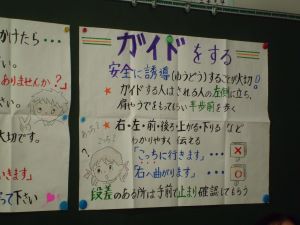 かけたら・・・
ありませんか?」
さい。
さい。
大切です。
いきます」
って下さい
ガイドをする
安全に誘導(ゆうどう)することが大切!
* ガイドする人はされる人の左側に立ち、
肩やうでをもってもらい半歩前を歩く
* 右・左・前・後ろ・上がる・下がる など
わかりやすく伝える
「こっちに行きます。」・・・ ×
「右へ曲がります。」・・・
段差のある所は手前で止まり確認してもらう